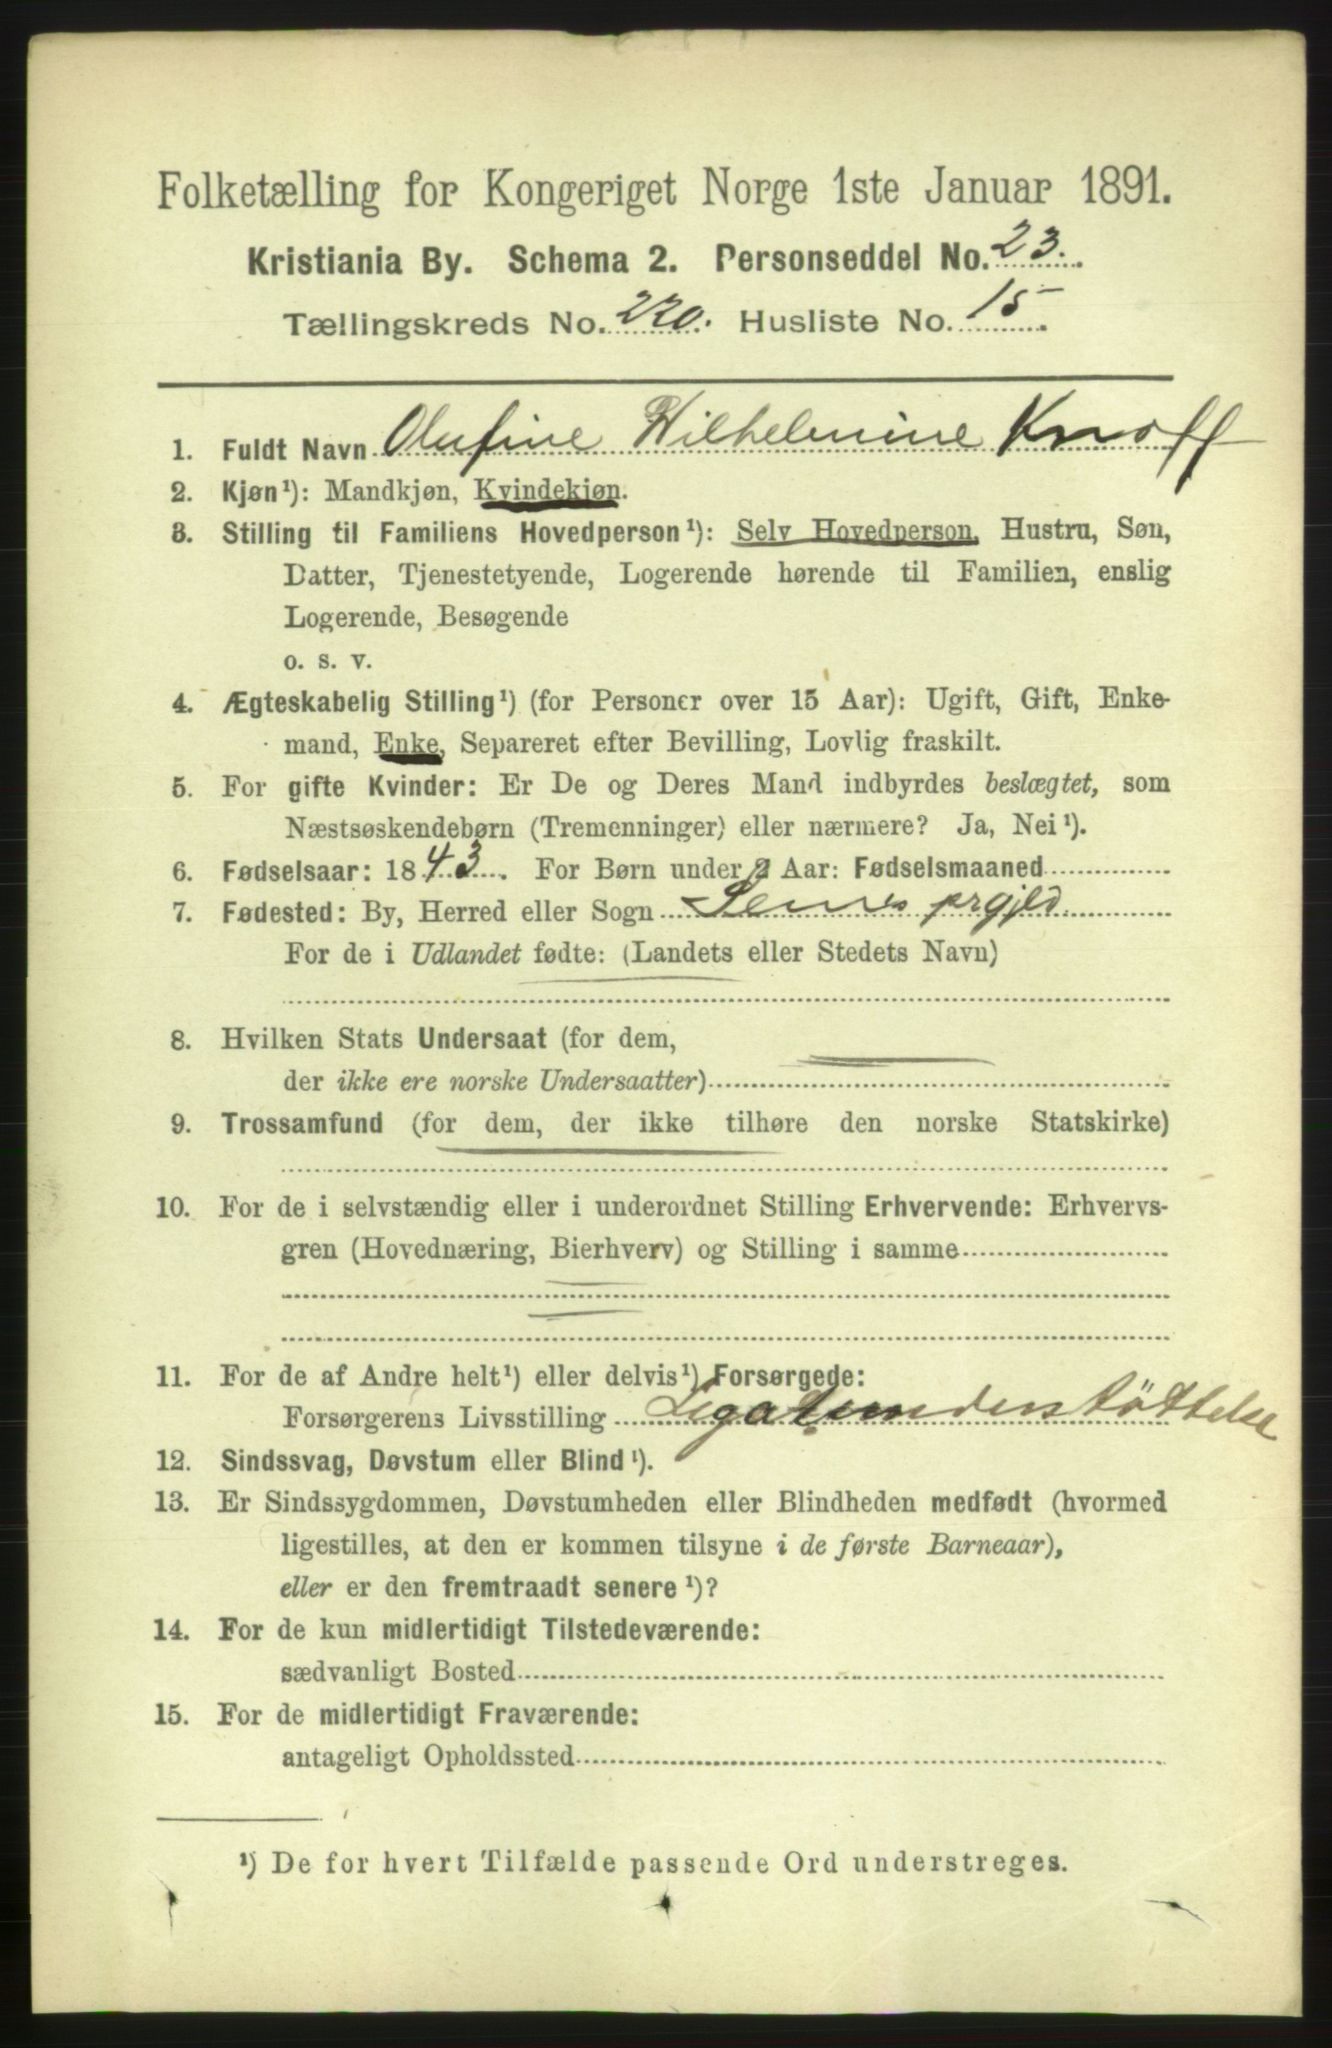 Folketælling for Kongeriget Norge 1ste Januar 1891.
Kristiania By. Schema 2. Personseddel No. 23.
Tællingskreds No. 220. Husliste No. 15.
1. Fuldt Navn Olufine Wilhelmine Knoff
2. Kjøn¹): Mandkjøn, Kvindekjøn.
3. Stilling til Familiens Hovedperson¹): Selv Hovedperson, Hustru, Søn,
Datter, Tjenestetyende, Logerende hørende til Familien, enslig
Logerende, Besøgende
o. s. v.
4. Ægteskabelig Stilling¹) (for Personer over 15 Aar): Ugift, Gift, Enke-
mand, Enke, Separeret efter Bevilling, Lovlig fraskilt.
5. For gifte Kvinder: Er De og Deres Mand indbyrdes beslægtet, som
Næstsøskendebørn (Tremenninger) eller nærmere? Ja, Nei¹).
6. Fødselsaar: 1843. For Børn under 2 Aar: Fødselsmaaned
7. Fødested: By, Herred eller Sogn Sems prgjld
For de i Udlandet fødte: (Landets eller Stedets Navn)
8. Hvilken Stats Undersaat (for dem,
der ikke ere norske Undersaatter)
9. Trossamfund (for dem, der ikke tilhøre den norske Statskirke)
10. For de i selvstændig eller i underordnet Stilling Erhvervende: Erhvervs-
gren (Hovednæring, Bierhverv) og Stilling i samme
11. For de af Andre helt¹) eller delvis¹) Forsørgede:
Forsørgerens Livsstilling Legatunderstöttelse
12. Sindssvag, Døvstum eller Blind¹).
13. Er Sindssygdommen, Døvstumheden eller Blindheden medfødt (hvormed
ligestilles, at den er kommen tilsyne i de første Barneaar),
eller er den fremtraadt senere¹)?
14. For de kun midlertidigt Tilstedeværende:
sædvanligt Bosted
15. For de midlertidigt Fraværende:
antageligt Opholdssted
¹) De for hvert Tilfælde passende Ord understreges.